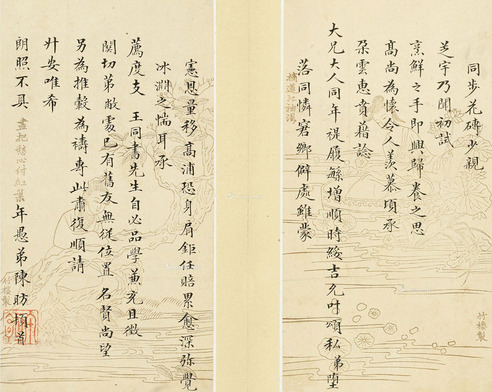 同步花磚少親
芝宇乃聞初試
烹鮮之手即興歸養之思
高尚為懷令人羨慕頃承
朶雲惠賁藉諗
大兄大人同年禔履緜增順時綏吉允叶頌私弟墮
落同憐窘鄉僻處雖蒙
憲恩量移高浦恐身肩鉅任賠累愈深弥覺
冰淵之惴耳承
薦度支王同書先生自必品學兼充且徵
關切弟敝處已有舊友無從位置名賢尚望
另為推轂為禱專此肅復順請
升安唯希
朗照不具
年愚弟陳昉頓首
竹樓製
竹樓製